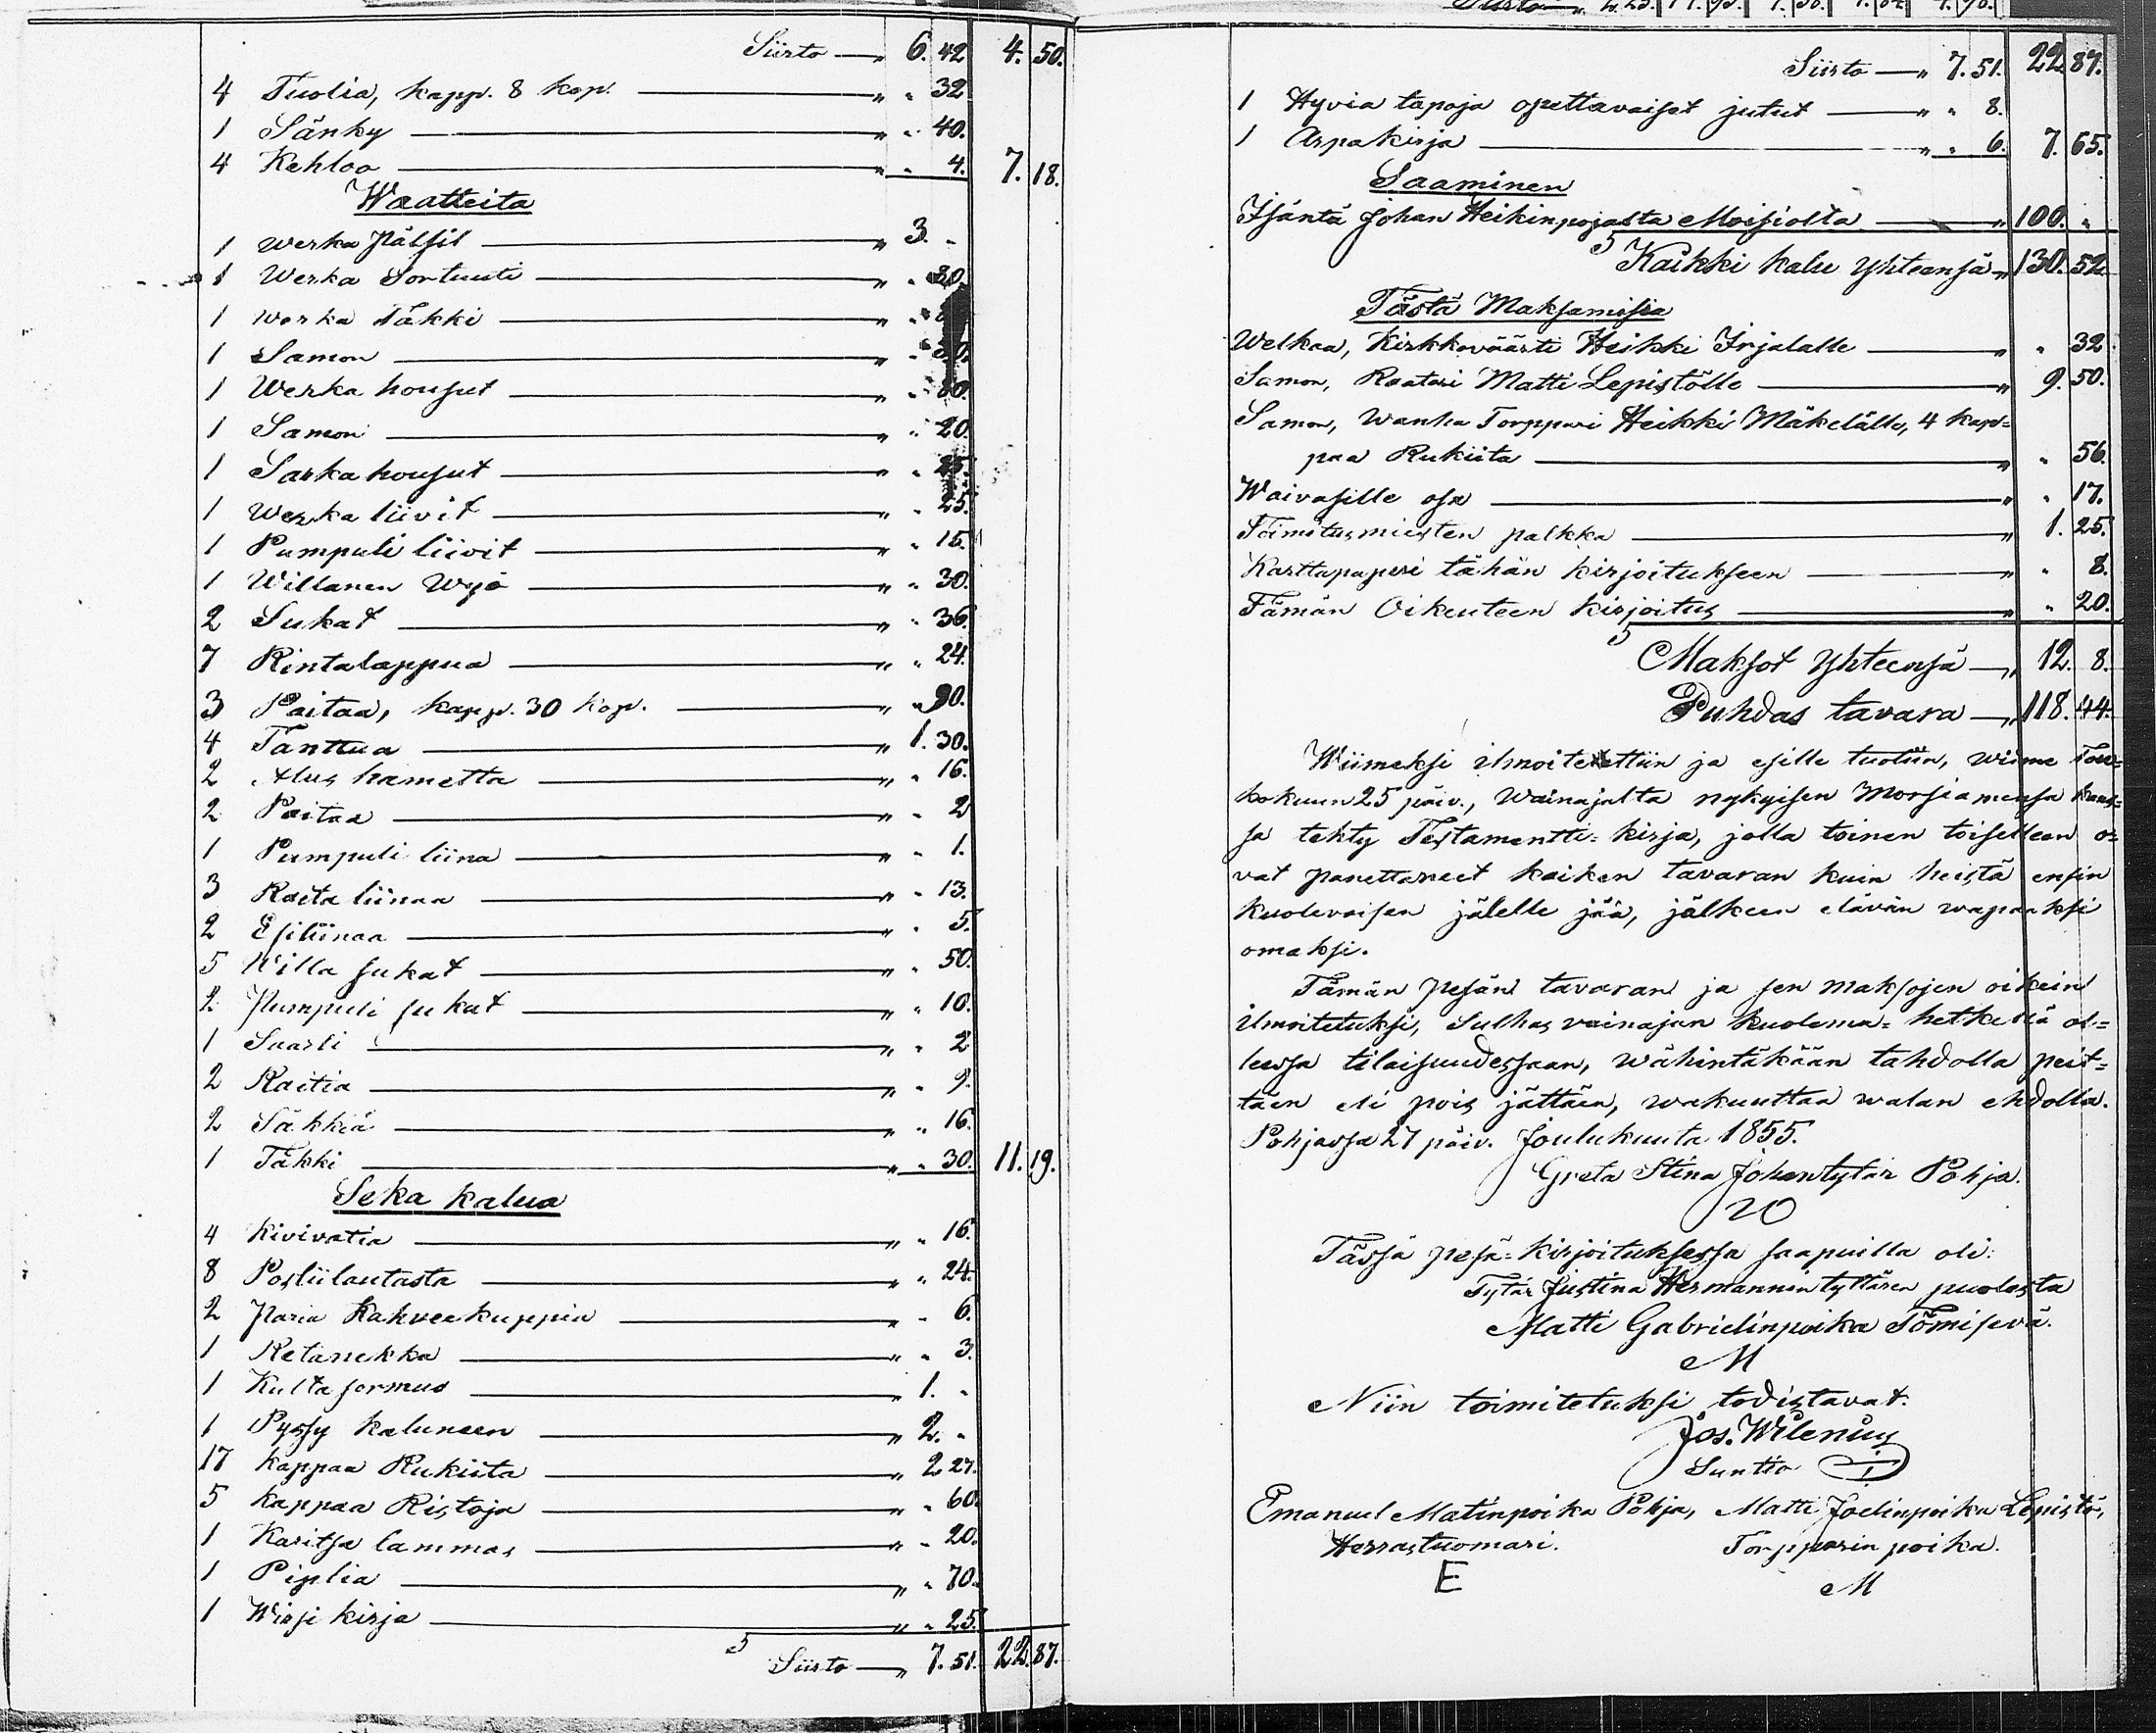 Siirto — „ 6. 42 4. 50.
4 Tuolia, kapp. 8 kop. — „ „ 32
1 Sänky — „ „ 40.
4 Kehloo — „ „ 4. 7. 18.
Waatteita
1 Werka Pälsil — „ 3. „
1 Werka Sortuuti — „ „ 80.
1 Werka Täkki — „
1 Samon — „ „
1 Werka housut — „ „ 80.
1 Samon — „ „ 20.
1 Sarka housut — „ „ 25.
1 Werka liivit — „ „ 25.
1 Pumpuli liivit — „ „ 15.
1 Willanen Wyö — „ „ 30.
2 Sukat — „ „ 36.
7 Rintalappua — „ „ 24.
3 Paitaa, kapp. 30 kop. — „ „ 90.
4 Tanttua — „ 1. 30.
2 Alus hametta — „ „ 16.
2 Paitaa — „ „ 2
1 Pumpuli liina — „ „ 1.
3 Raita liinaa — „ „ 13.
2 Esiliinaa — „ „ 5.
5 Willa sukat — „ „ 50.
2 Pumpuli sukat — „ „ 10.
1 Saarli — „ „ 2
2 Raitia — „ „ 9.
2 Säkkiä — „ „ 16.
1 Täkki — „ „ 30. 11. 19.
Seka kalua
4 Kivivatia — „ „ 16.
8 Posliilautasta — „ „ 24.
2 Paria Kahveekuppia — „ „ 6.
1 Retanekka — „ „ 3.
1 Kulta sormus — „ 1. „
1 Pyssy kaluneen — „ 2. „
17 kappaa Rukiita — „ 2 27.
5 kappaa Ristoja — „ „ 60.
1 Karitsa lammas — „ „ 20.
1 Piplia — „ „ 70.
1 Wirsi kirja — „ „ 25.
Siirto — „ 7. 51. 22. 87.
Siirto — „ 7. 51. 22 87.
1 Hyviä tapoja opettavaiset jutut — „ „ 8.
1 Arpakirja — „ „ 6. 7. 65.
Saaminen
Isäntä Johan Heikinpojalta Moisiolta — „ 100. „
Kaikki kalu yhteensä „ 130. 52
Tästä Maksamisia
Welkaa, Kirkkoväärti Heikki Irjalalle — „ „ 32
Samon, Raatari Matti Lepistölle — „ 9. 50.
Samon, Wanha Torppari Heikki Mäkelälle, 4 kap=
paa Rukiita — „ „ 56.
Waivasille osa — „ „ 17.
Toimitusmiesten palkka — „ 1. 25.
Karttapaperi tähän kirjoitukseen — „ „ 8.
Tämän Oikeuteen kirjoitus — „ „ 20.
Maksot yhteensä — „ 12. 8.
Puhdas tavara — „ 118. 44.
Wiimeksi ilmoitettiin ja esille tuotiin, wiime Tou=
kokuun 25 päiv., Wainajalta nykyisen Morsiamensa kans=
sa tehty Testamentti=kirja, jolla toinen toiselleen o=
vat panettaneet kaiken tavaran kuin heistä ensin
kuolevaisen jälelle jää, jälkeen elävän wapaaksi
omaksi.
Tämän pesän tavaran ja sen maksojen oikein
ilmoitetuksi, Sulhas vainajan kuolema=hetkellä ol=
leessa tilaisuudessaan, wähintäkään tahdolla peit=
täen eli pois jättäen, wakuuttaa walan ehdolla.
Pohjassa 27 päiv. Joulukuuta 1855.
Greta Stina Johantytär Pohja.
Tässä pesä=kirjoituksessa saapuilla oli:
Tytär Justina Hermannin tyttären puolesta
Matti Gabrielinpoika Tömisevä.
M
Niin toimitetuksi todistavat:
Jos. Wilenius
Suntio
Emanuel Matinpoika Pohja, Matti Joelinpoika Lepistö,
Herrastuomari. Torpparin poika.
E M